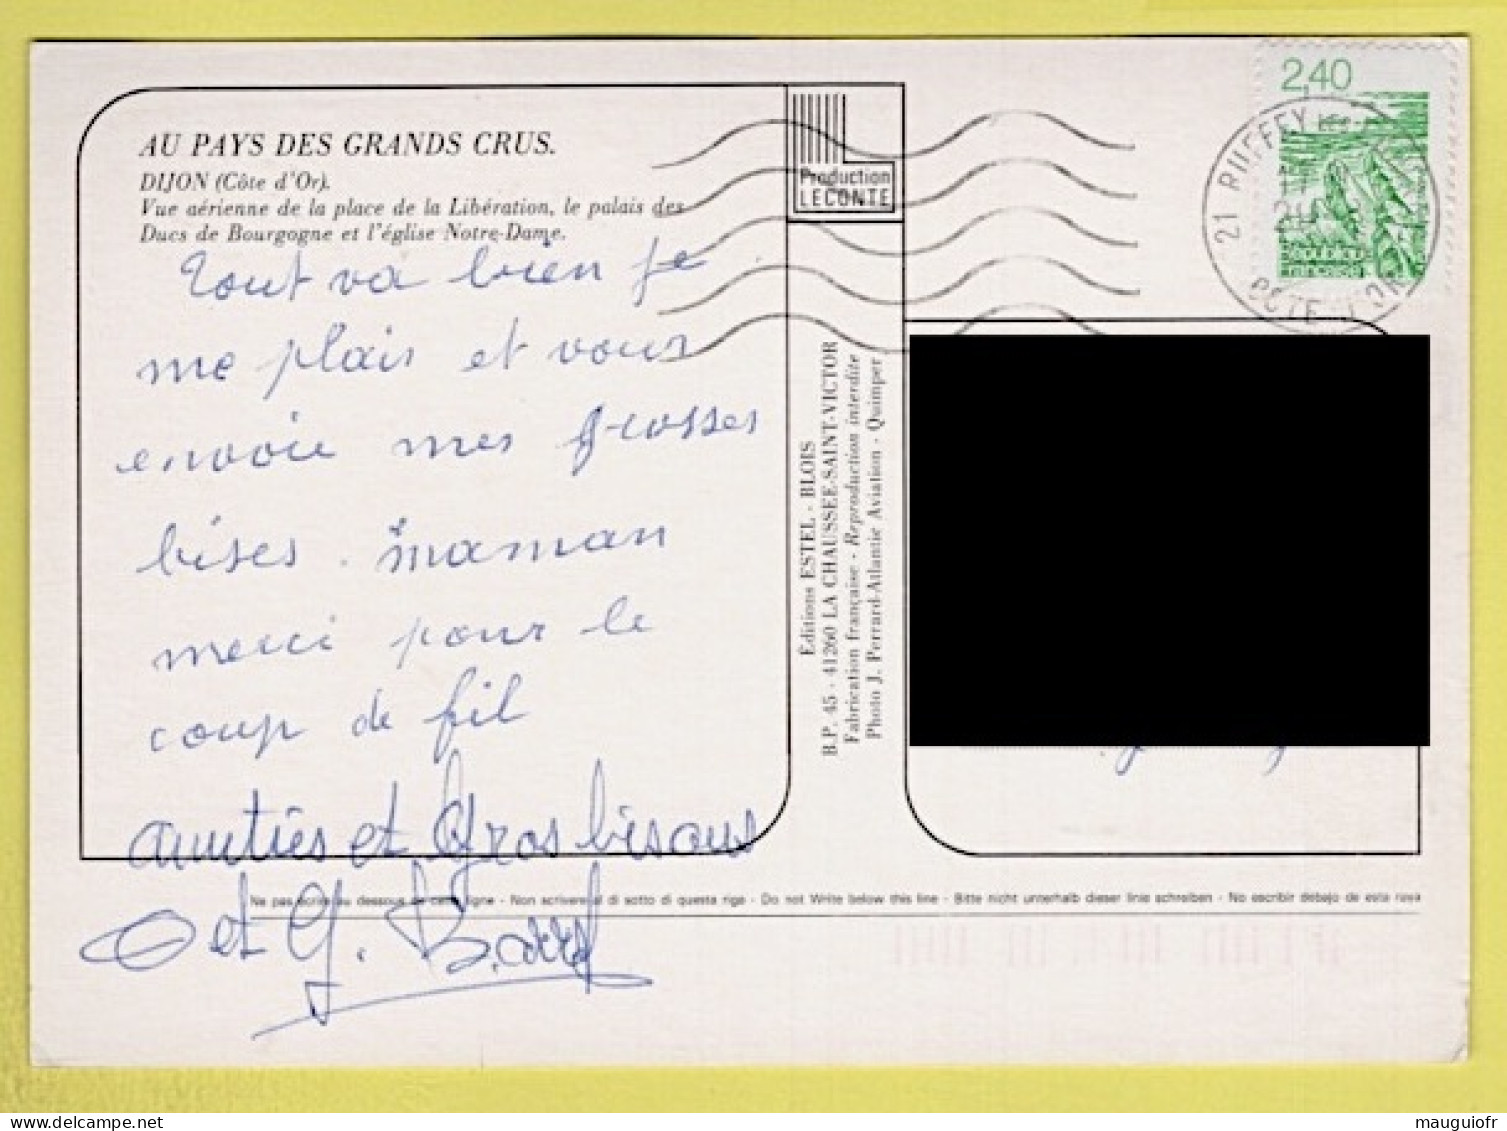 AU PAYS DES GRANDS CRUS.
DIJON (Côte d'Or).
Vue aérienne de la place de la Libération, le palais des
Ducs de Bourgogne et l'église Notre-Dame.
Tout va bien je
me plais et vous
envoie mes grosses
bises. maman
merci pour le
coup de fil
amitiés et gros bisous
et G.
Production
LECONTE
Éditions ESTEL - BLOIS
B.P. 45 - 41260 LA CHAUSSEE-SAINT-VICTOR
Fabrication française - Reproduction interdite
Photo J. Perrard-Atlantic Aviation - Quimper
2,40
21 RUFFEY LES
COTE D'OR
République
française
Ne pas écrire au dessous de cette ligne - Non scrivere al di sotto di questa riga - Do not Write below this line - Bitte nicht unterhalb dieser linie schreiben - No escribir debajo de esta raya
mauguiofr